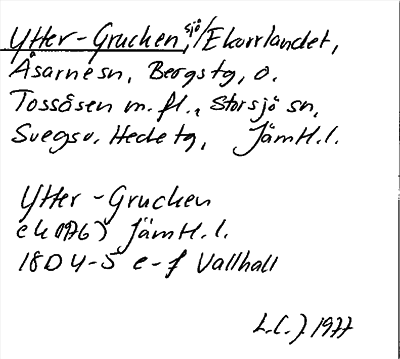 Ytter-Grucken, sjö/Ekorrlandet,
Åsarne sn, Bergs tg, o.
Tossåsen m.fl., Storsjö sn,
Svegs o. Hede tg, Jämtl.l.
Ytter-Grucken
ek 1976) Jämtl.l.
18D 4-5 e-f Vallhall
L.C.J 1977